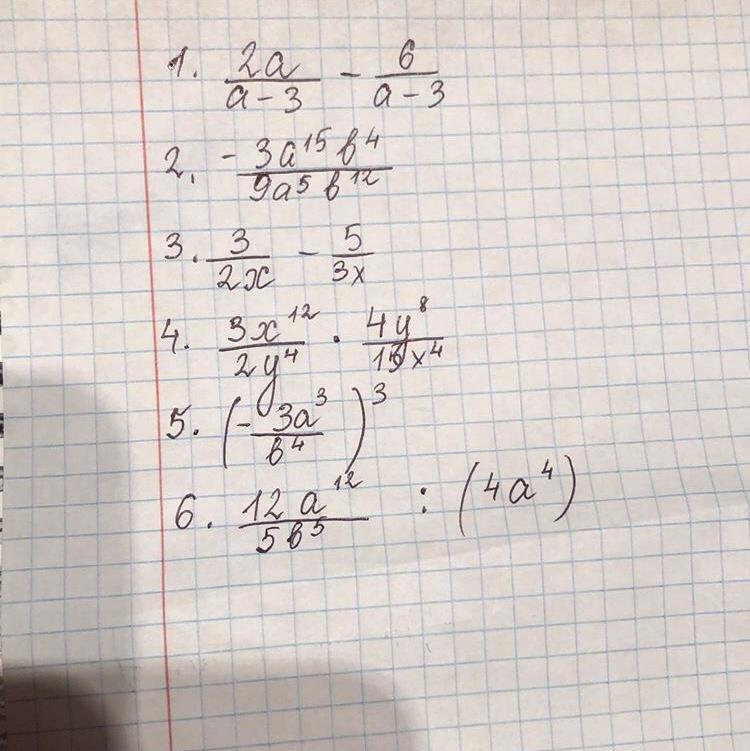 1. 2a/(a-3) - 6/(a-3)
2. -3a¹⁵в⁴/9a⁵в¹²
3. 3/2x - 5/3x
4. 3x¹²/2y⁴ · 4y⁸/15x⁴
5. (-3a³/в⁴)³
6. 12a¹²/5в⁵ : (4a⁴)